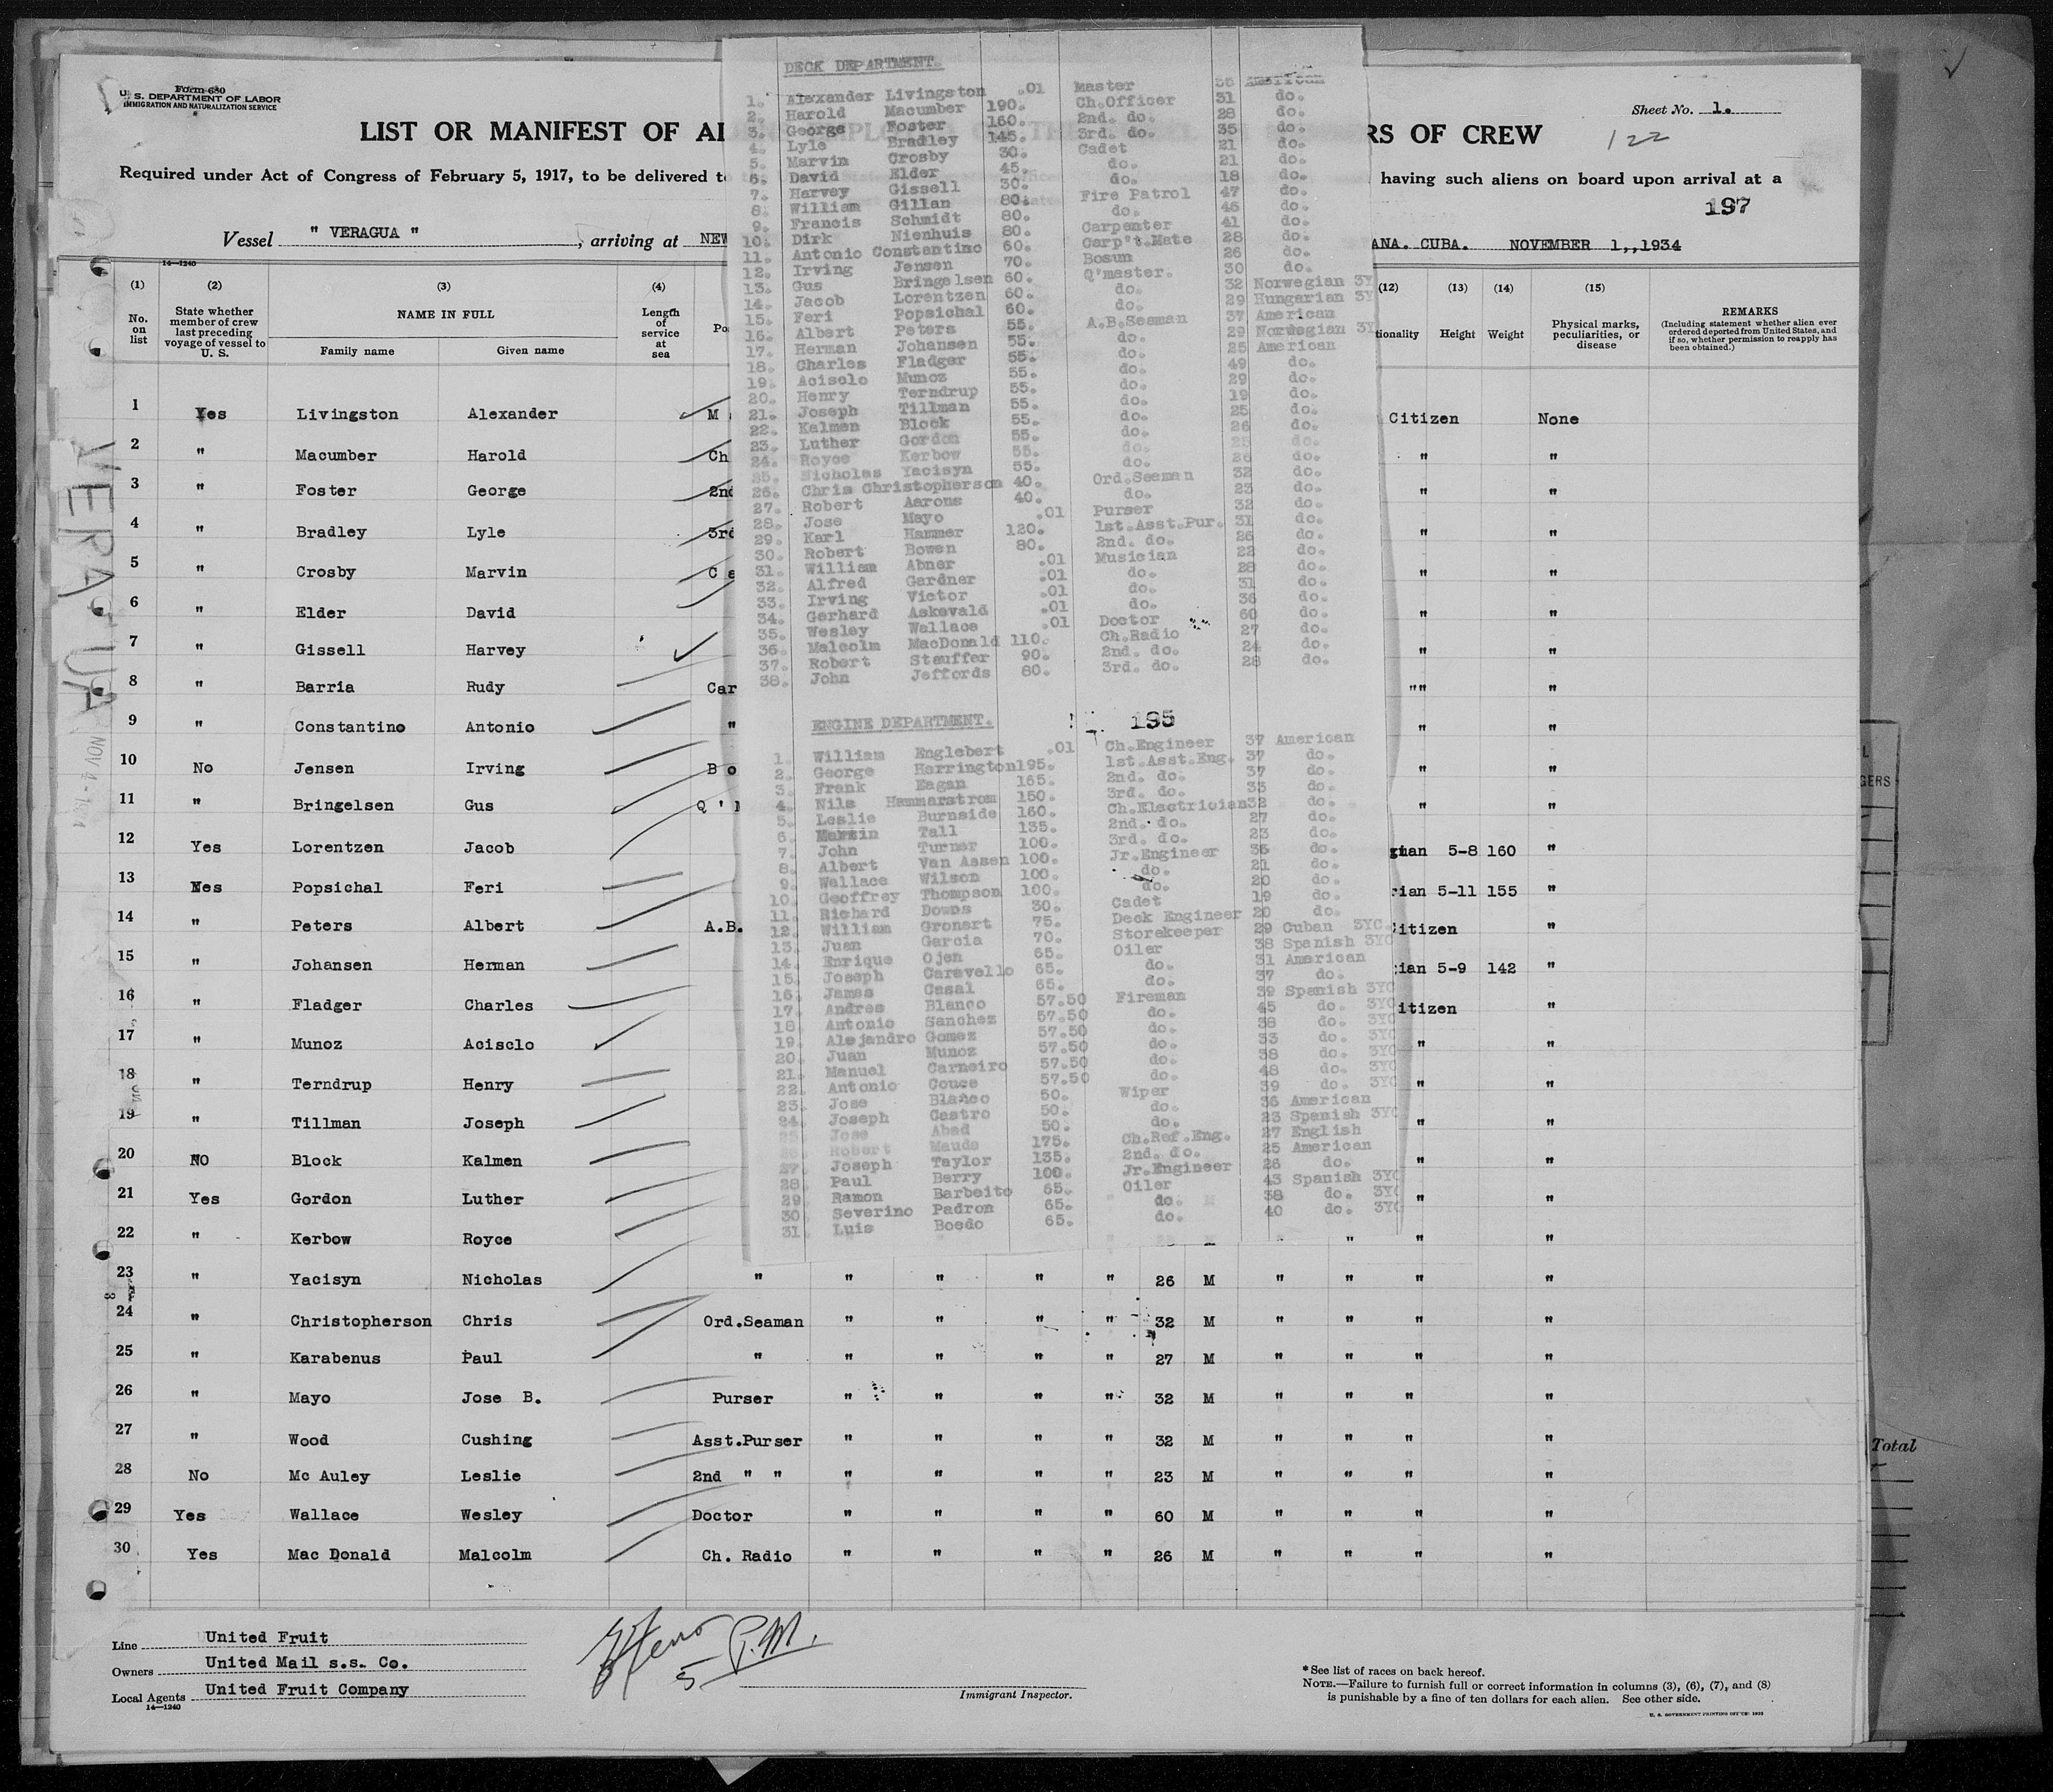 Form 680
U. S. DEPARTMENT OF LABOR
IMMIGRATION AND NATURALIZATION SERVICE
Sheet No. 1.
LIST OR MANIFEST OF AL
RS OF CREW
122
Required under Act of Congress of February 5, 1917, to be delivered to
having such aliens on board upon arrival at a
197
Vessel " VERAGUA " , arriving at NEW
ANA. CUBA. NOVEMBER 1,,1934
14—1240
(1) (2) (3) (4) (12) (13) (14) (15)
No. on list
State whether member of crew last preceding voyage of vessel to U. S.
NAME IN FULL
Family name Given name
Length of service at sea
Po
tionality Height Weight
Physical marks, peculiarities, or disease
REMARKS
(Including statement whether alien ever ordered deported from United States, and if so, whether permission to reapply has been obtained.)
1 Yes Livingston Alexander M Citizen None
2 " Macumber Harold Ch " "
3 " Foster George 2nd " "
4 " Bradley Lyle 3rd " "
5 " Crosby Marvin Ca " "
6 " Elder David " "
7 " Gissell Harvey " "
8 " Barria Rudy Car "" "
9 " Constantino Antonio " " "
10 No Jensen Irving Bo " "
11 " Bringelsen Gus Q'M " "
12 Yes Lorentzen Jacob gian 5-8 160 "
13 Yes Popsichal Feri rian 5-11 155 "
14 " Peters Albert A.B. itizen "
15 " Johansen Herman ian 5-9 142 "
16 " Fladger Charles itizen "
17 " Munoz Acisclo " "
18 " Terndrup Henry " "
19 " Tillman Joseph " "
20 NO Block Kalmen " "
21 Yes Gordon Luther " "
22 " Kerbow Royce " " " "
23 " Yacisyn Nicholas " " " " " 26 M " " " "
24 " Christopherson Chris Ord.Seaman " " " " 32 M " " " "
25 " Karabenus Paul " " " " " 27 M " " " "
26 " Mayo Jose B. Purser " " " " 32 M " " " "
27 " Wood Cushing Asst.Purser " " " " 32 M " " " "
28 No Mc Auley Leslie 2nd " " " " " " 23 M " " " "
29 Yes Wallace Wesley Doctor " " " " 60 M " " " "
30 Yes Mac Donald Malcolm Ch. Radio " " " " 26 M " " " "
DECK DEPARTMENT.
1. Alexander Livingston .01 Master 56 American
2. Harold Macumber 190. Ch.Officer 31 do.
3. George Foster 160. 2nd. do. 28 do.
4. Lyle Bradley 145. 3rd. do. 35 do.
5. Marvin Crosby 30. Cadet 21 do.
6. David Elder 45. do. 21 do.
7. Harvey Gissell 30. do. 18 do.
8. William Gillan 80. Fire Patrol 47 do.
9. Francis Schmidt 80. do. 46 do.
10. Dirk Nienhuis 80. Carpenter 41 do.
11. Antonio Constantino 60. Carp't.Mate 28 do.
12. Irving Jensen 70. Bosun 26 do.
13. Gus Bringelsen 60. Q'master. 30 do.
14. Jacob Lorentzen 60. do. 32 Norwegian 3Y
15. Feri Popsichal 60. do. 29 Hungarian 3Y
16. Albert Peters 55. A.B.Seaman 37 American
17. Herman Johansen 55. do. 29 Norwegian 3Y
18. Charles Fladger 55. do. 25 American
19. Acisclo Munoz 55. do. 49 do.
20. Henry Terndrup 55. do. 29 do.
21. Joseph Tillman 55. do. 19 do.
22. Kalmen Block 55. do. 25 do.
23. Luther Gordon 55. do. 26 do.
24. Royce Kerbow 55. do. 25 do.
25. Nicholas Yacisyn 55. do. 26 do.
26. Chris Christopherson 40. Ord.Seaman 32 do.
27. Robert Aarons 40. do. 23 do.
28. Jose Mayo .01 Purser 32 do.
29. Karl Hammer 120. 1st.Asst.Pur. 31 do.
30. Robert Bowen 80. 2nd. do. 26 do.
31. William Abner .01 Musician 22 do.
32. Alfred Gardner .01 do. 28 do.
33. Irving Victor .01 do. 31 do.
34. Gerhard Askevald .01 do. 36 do.
35. Wesley Wallace .01 Doctor 60 do.
36. Malcolm MacDonald 110. Ch.Radio 27 do.
37. Robert Stauffer 90. 2nd. do. 24 do.
38. John Jeffords 80. 3rd. do. 28 do.
ENGINE DEPARTMENT. 195
1. William Englebert .01 Ch.Engineer 37 American
2. George Harrington 195. 1st.Asst.Eng. 37 do.
3. Frank Eagan 165. 2nd. do. 37 do.
4. Nils Hammarstrom 150. 3rd. do. 33 do.
5. Leslie Burnside 160. Ch.Electrician 32 do.
6. Martin Tall 135. 2nd. do. 27 do.
7. John Turner 100. 3rd. do. 23 do.
8. Albert Van Assen 100. Jr.Engineer 36 do.
9. Wallace Wilson 100. do. 21 do.
10. Geoffrey Thompson 100. do. 20 do.
11. Richard Downs 30. Cadet 19 do.
12. William Gronert 75. Deck Engineer 20 do.
13. Juan Garcia 70. Storekeeper 29 Cuban 3YC
14. Enrique Ojen 65. Oiler 38 Spanish 3YC
15. Joseph Caravello 65. do. 31 American
16. James Casal 65. do. 37 do.
17. Andres Blanco 57.50 Fireman 39 Spanish 3YC
18 Antonio Sanchez 57.50 do. 45 do. 3YC
19. Alejandro Gomez 57.50 do. 38 do. 3YC
20. Juan Munoz 57.50 do. 33 do. 3YC
21. Manuel Carneiro 57.50 do. 38 do. 3YC
22. Antonio Couce 57.50 do. 48 do. 3YC
23. Jose Blanco 50. Wiper 39 do. 3YC
24. Joseph Castro 50. do. 36 American
25 Jose Abad 50. do. 23 Spanish 3YC
26 Robert Maude 175. Ch.Ref.Eng. 27 English
27. Joseph Taylor 135. 2nd. do. 25 American
28. Paul Berry 100. Jr.Engineer 26 do.
29 Ramon Barbeito 65. Oiler 43 Spanish 3YC
30 Severino Padron 65. do. 38 do. 3YC
31 Luis Boedo 65. do. 40 do. 3YC
VERAGUA
NOV 4 - 1934
Line United Fruit
Owners United Mail s.s. Co.
Local Agents United Fruit Company
14—1240
5 P.M.
Immigrant Inspector.
*See list of races on back hereof.
NOTE.—Failure to furnish full or correct information in columns (3), (6), (7), and (8)
is punishable by a fine of ten dollars for each alien. See other side.
U. S. GOVERNMENT PRINTING OFFICE:
GERS
Total